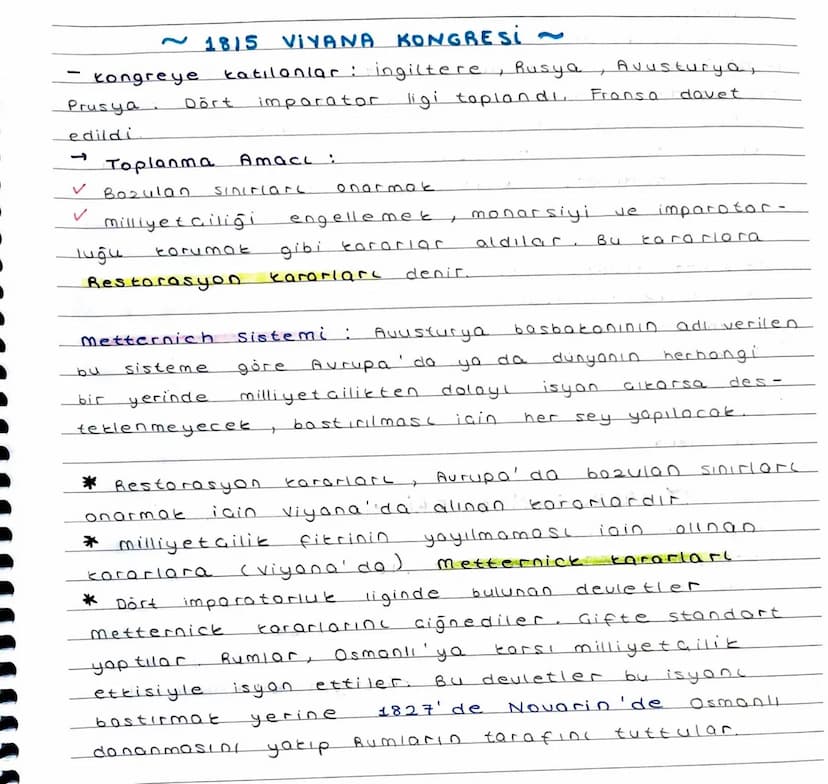 ~ 1815 VİYANA KONGRESİ ~
- Kongreye katılanlar : ingiltere , Rusya , Avusturya ,
Prusya . Dört imparator ligi toplandı. Fransa davet
edildi
→ Toplanma Amacı :
✓ Bozulan sınırları onarmak
✓ milliyetciliği engellemek , monarsiyi ve imparator-
luğu korumak gibi kararlar aldılar . Bu kararlara
Restorasyon kararları denir.
Metternich Sistemi : Avusturya basbakanının adı verilen
bu sisteme göre Avrupa'da ya da dunyanın herhangi
bir yerinde milliyetcilikten dolayı isyan cıkarsa des-
teklenmeyecek , bastırılması icin her sey yapılacak.
* Restorasyon kararları , Avrupa'da bozulan sınırları
onarmak icin Viyana'da alınan kararlardır.
* milliyetcilik fikrinin yayılmaması icin alınan
kararlara (Viyana'da) metternick kararları
* Dört imparatorluk liginde bulunan devletler
metternick kararlarını ciğnediler . Cifte standart
yaptılar . Rumlar , Osmanlı'ya karsı milliyetcilik
etkisiyle isyan ettiler. Bu devletler bu isyanı
bastırmak yerine 1827'de Novarin'de Osmanlı
dananmasını yakıp Rumların tarafını tuttular.